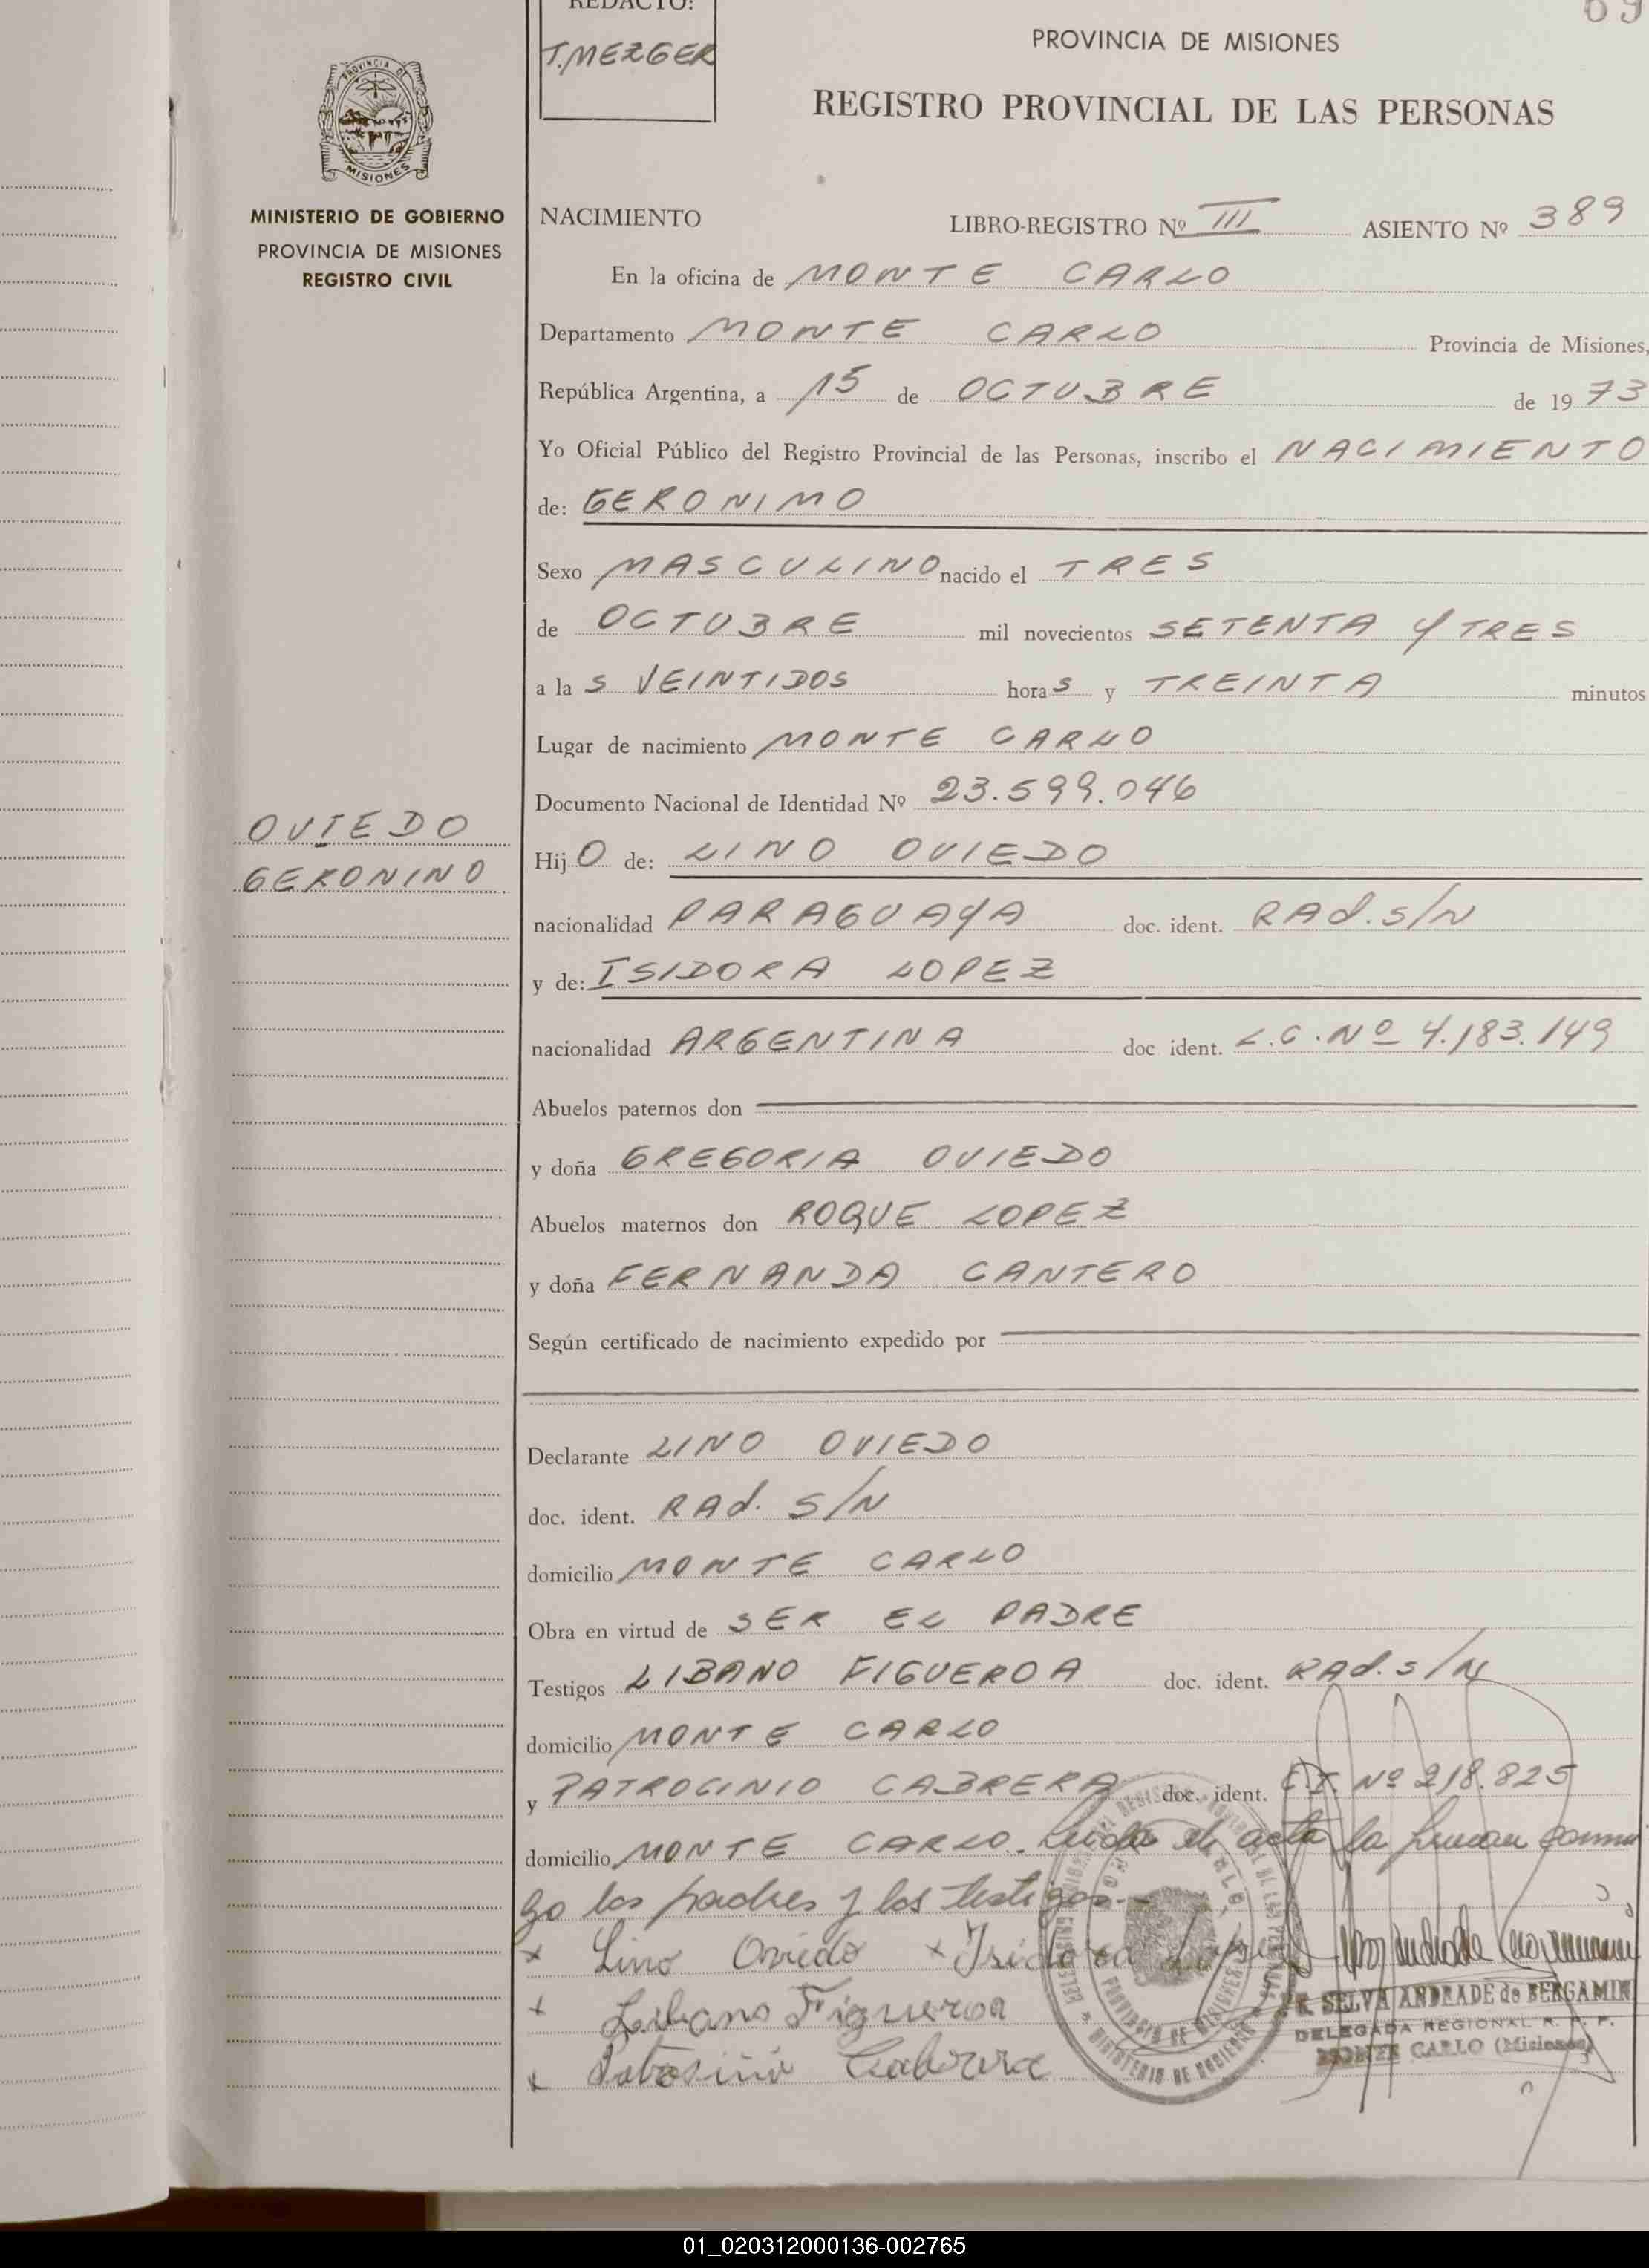 REDACTO:
T. MEZGER
69
PROVINCIA DE MISIONES
REGISTRO PROVINCIAL DE LAS PERSONAS
PROVINCIA DE
MISIONES
MINISTERIO DE GOBIERNO
PROVINCIA DE MISIONES
REGISTRO CIVIL
NACIMIENTO LIBRO-REGISTRO Nº III ASIENTO Nº 389
En la oficina de MONTE CARLO
Departamento MONTE CARLO Provincia de Misiones,
República Argentina, a 15 de OCTUBRE de 1973
Yo Oficial Público del Registro Provincial de las Personas, inscribo el NACIMIENTO
de: GERONIMO
Sexo MASCULINO nacido el TRES
de OCTUBRE mil novecientos SETENTA Y TRES
a la s VEINTIDOS hora s y TREINTA minutos
Lugar de nacimiento MONTE CARLO
Documento Nacional de Identidad Nº 23.599.046
OVIEDO
GERONINO
Hij O de: LINO OVIEDO
nacionalidad PARAGUAYA doc. ident. RAd. s/N
y de: ISIDORA LOPEZ
nacionalidad ARGENTINA doc ident. L.C. Nº 4.183.149
Abuelos paternos don
y doña GREGORIA OVIEDO
Abuelos maternos don ROQUE LOPEZ
y doña FERNANDA CANTERO
Según certificado de nacimiento expedido por
Declarante LINO OVIEDO
doc. ident. RAd. S/N
domicilio MONTE CARLO
Obra en virtud de SER EL PADRE
Testigos LIBANO FIGUEROA doc. ident. RAd. s/N
domicilio MONTE CARLO
y PATROCINIO CABRERA doc. ident. C.I. Nº 218.825
domicilio MONTE CARLO. Leida el acta la firman conmi
go los padres y los testigos.-
x Lino Oviedo x Isidora Lopez
x Libano Figueroa
x Patrosinio Cabrera
SELVA ANDRADE de BERGAMIN
DELEGADA REGIONAL R. P. P.
MONTE CARLO (Misiones)
PROVINCIA DE MISIONES
MINISTERIO DE GOBIERNO
01_020312000136-002765